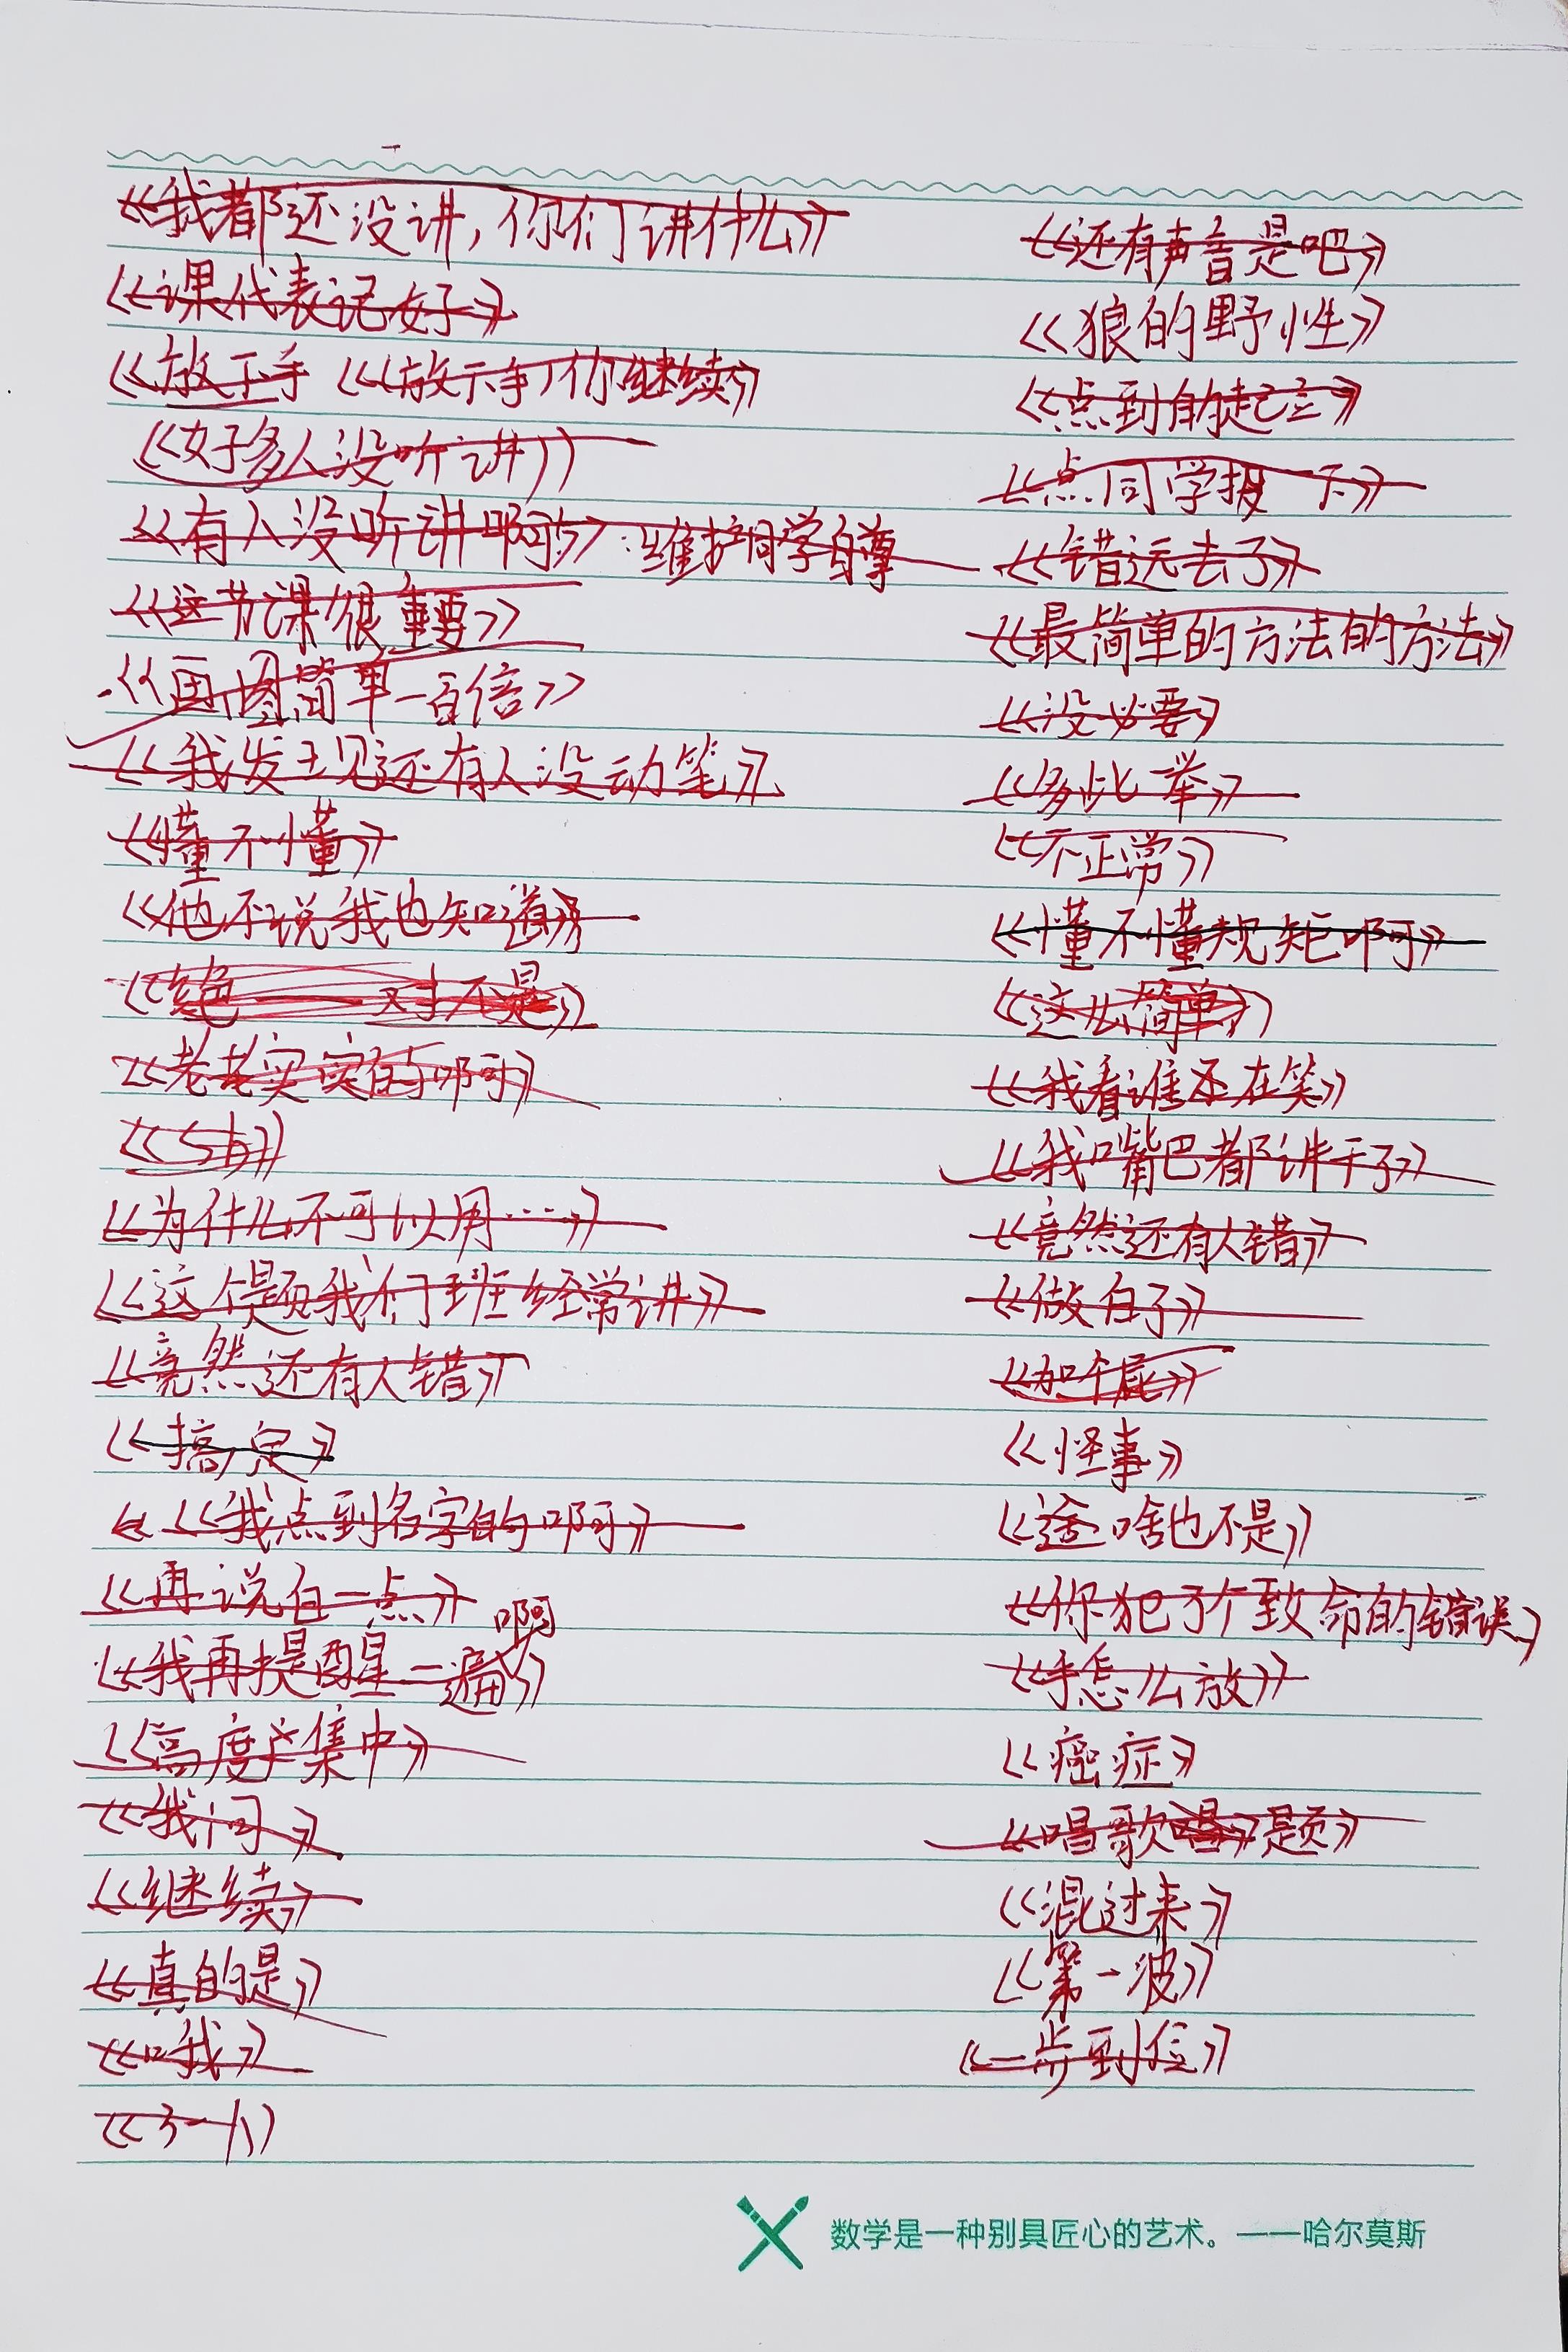 《我都还没讲，你们讲什么》
《课代表记好》
《放下手 《《放下手，你继续》
《好多人没听讲》
《有人没听讲啊》：维护同学自尊
《这节课很重要》
《画图简单一百倍》
《我发现还有人没动笔》
《懂不懂》
《他不说我也知道》
《绝——对不是》
《老老实实的啊》
《sb》
《为什么不可以用……》
《这个题我们班经常讲》
《竟然还有人错》
《搞定》
《《我点到名字的啊》
《再说白一点》
《我再提醒一遍啊》
《高度集中》
《我问》
《继续》
《真的是》
《我》
《还有声音是吧》
《狼的野性》
《点到的起立》
《点同学报一下》
《错远去了》
《最简单的方法的方法》
《没必要》
《多此一举》
《不正常》
《懂不懂规矩啊》
《这么简单》
《我看谁还在笑》
《我嘴巴都讲干了》
《竟然还有人错》
《做白了》
《加个屁》
《怪事》
《啥也不是》
《你犯了个致命的错误》
《手怎么放》
《癌症》
《唱歌 题》
《混过来》
《第一波》
《一步到位》
数学是一种别具匠心的艺术。——哈尔莫斯